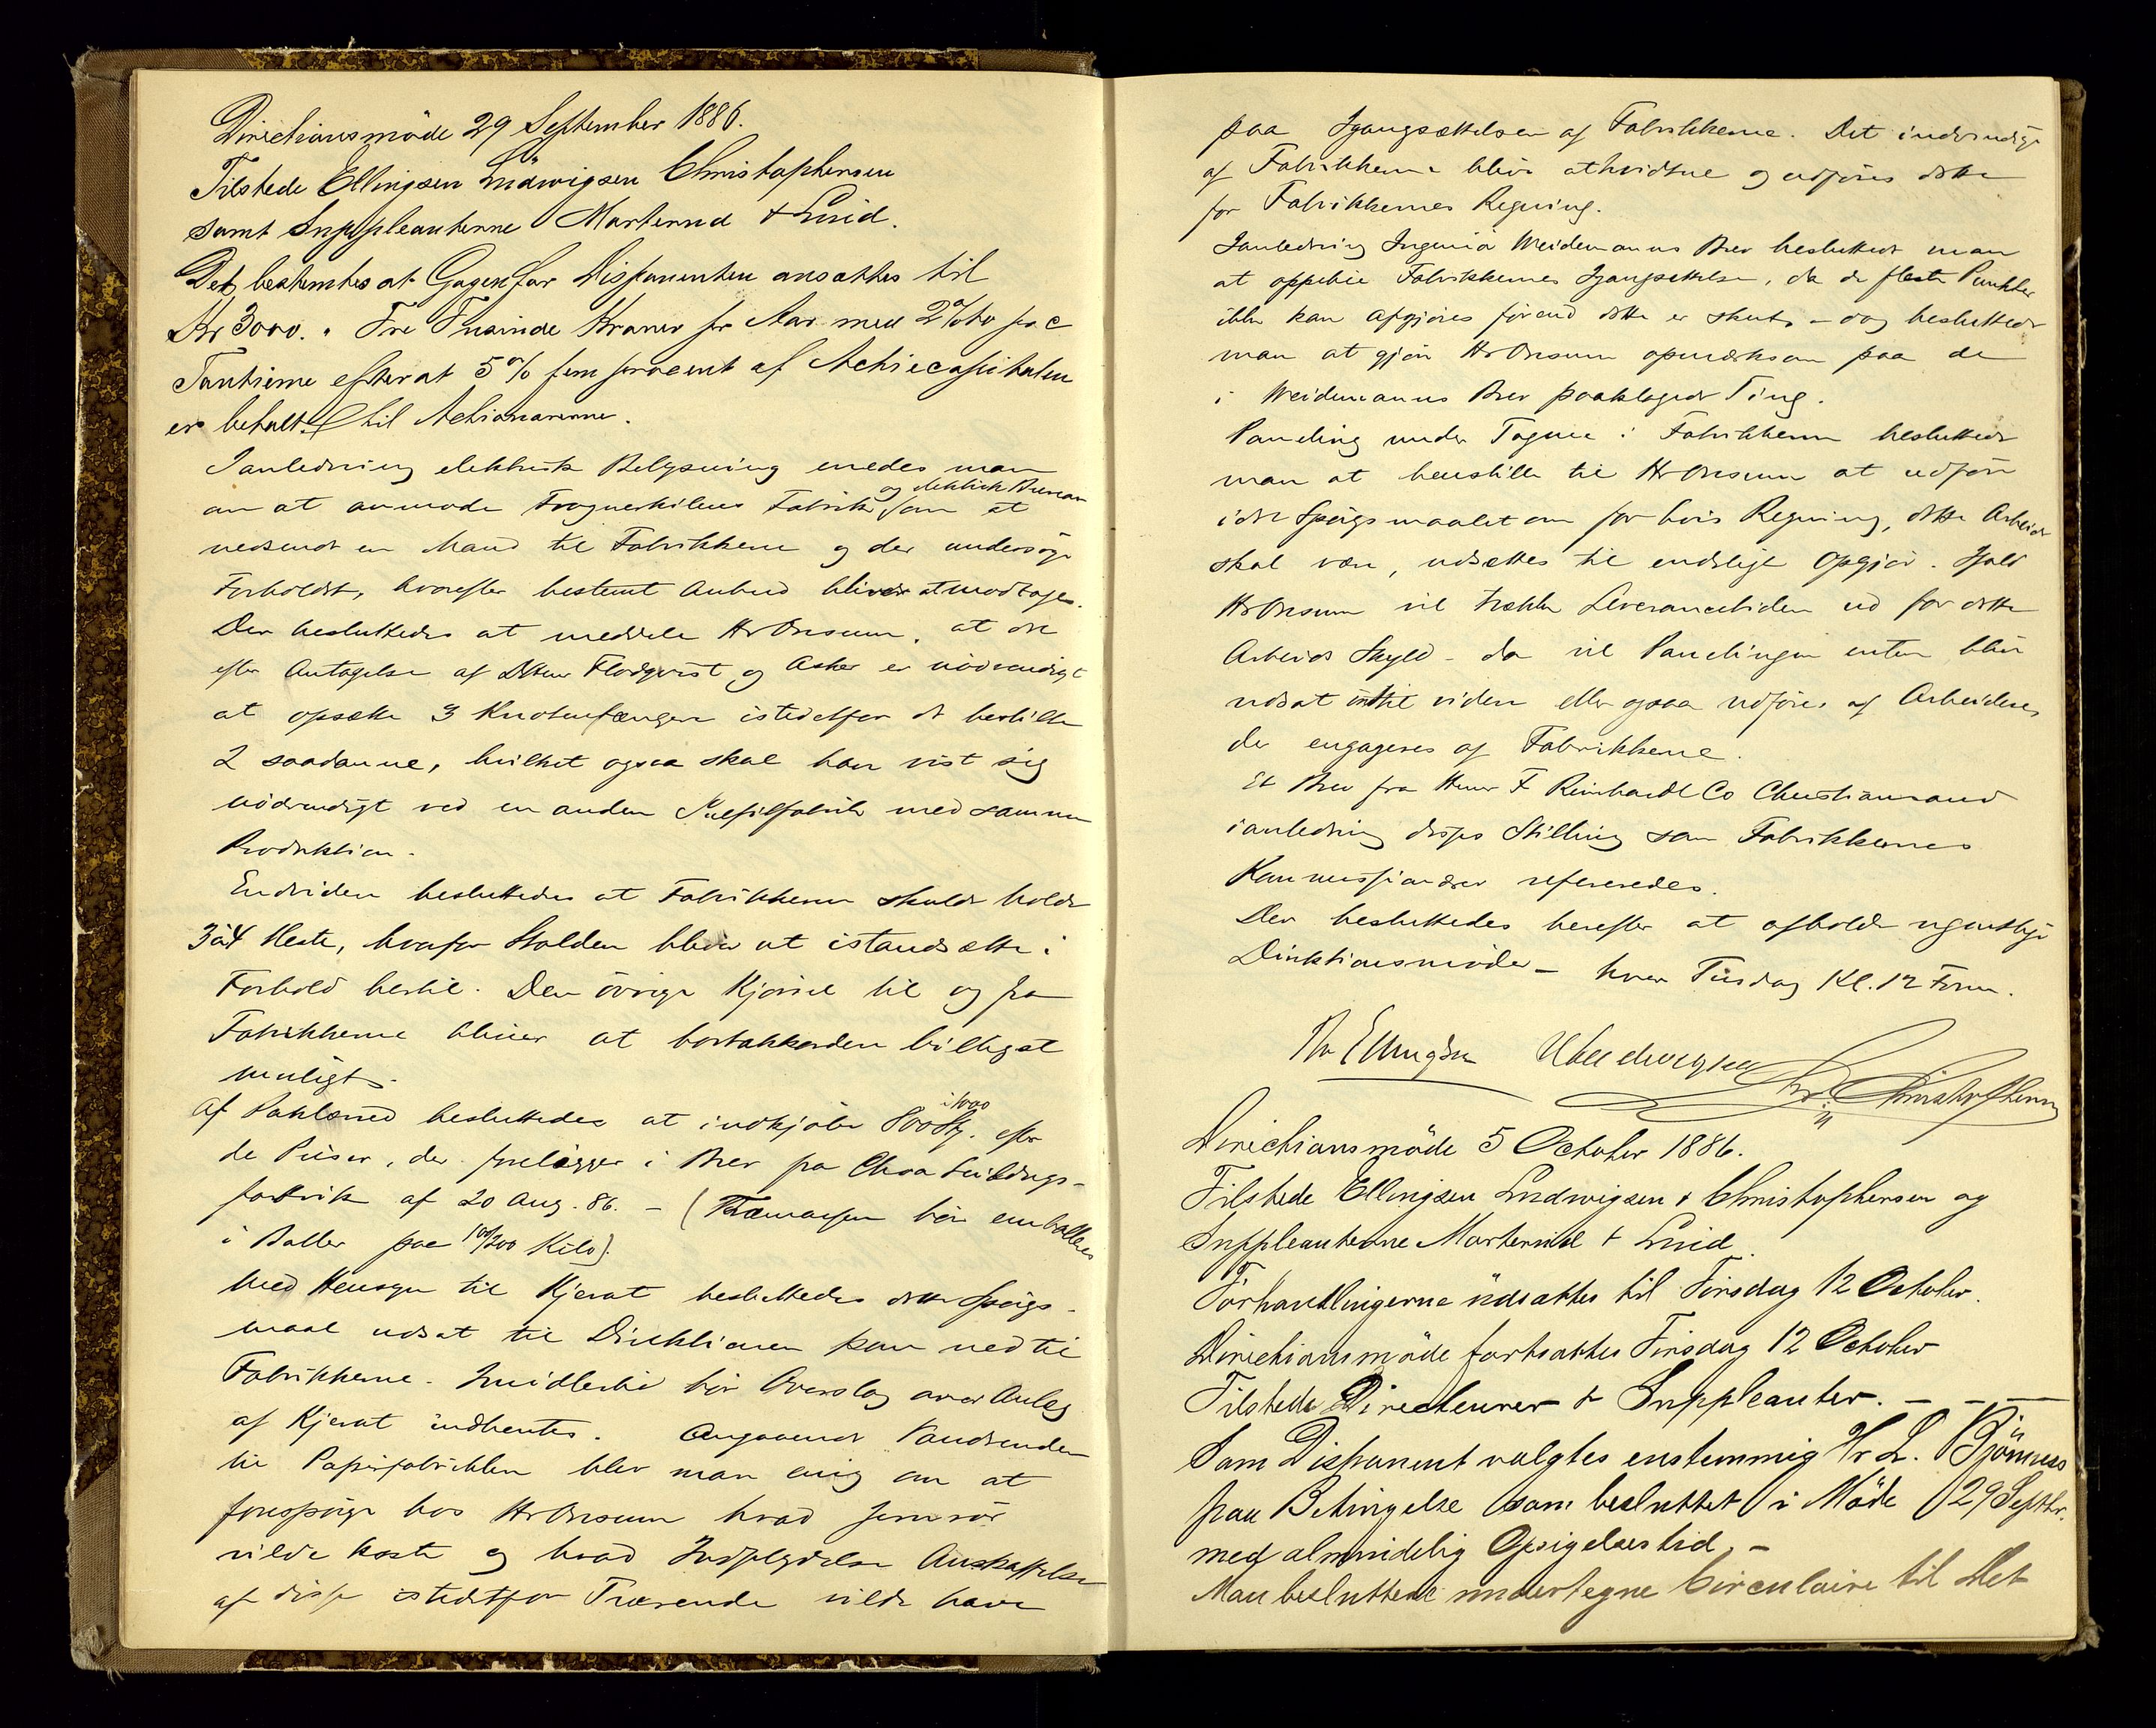 Directionsmöde 29 September 1886.
Tilstede Ellingsen Ludwigsen Christophersen
samt Suppleanterne Marterud & Lund.
Det bestemtes at Gagen for Disponenten ansattes til
Kr 3000. " Tre Tusinde Kroner pr Aar med 2% to pro c
Tantieme efterat 5% fem procent af Actiecapitalen
er betalt til Actionærerne.
I anledning elektrisk Belysning enedes man
og elektrisk Bureau
om at anmode Frognerkilens Fabrik om at
nedsende en Mand til Fabrikkerne og der undersøge
Forholdet, hvorefter bestemt Anbud bliver at modtage.
Der besluttedes at meddele Hr Onsum, at det
efter Antagelse af DHerr Flodqvist og Asker er nødvendigt
at opsætte 3 Knotenfænger istedetfor de bestilte
2 saadanne, hvilket ogsaa skal have vist sig
nødvendigt ved en anden Sulfitfabrik med samme
Produktion.
Endvidere besluttedes at Fabrikkerne skulde holde
3 à 4 Heste, hvorfor Stalden bliver at istandsætte i
Forhold hertil. Den øvrige Kjørsel til og fra
Fabrikkerne bliver at bortakkordere billigst
muligt.
i 1000
Af Paklærred besluttedes at indkjøbe 800 Stk. efter
de Priser, der foreligger i Brev fra Christiania Seildugs-
fabrik af 20 Aug. 86. - ( bør emballeres
i Baller paa 100/200 Kilo).
Med Hensyn til Kjerat besluttedes dette Spørgs-
maal udsat til Direktionen kom ned til
Fabrikkerne. Imidlertid bør Overslag over Anlæg
af Kjerat indhentes. Angaaende Vandrenden
til Papirfabrikken blev man enig om at
forespørge hos Hr Onsum hvad Jernrør
vilde koste og hvad Indflydelse Anskaffelse
af disse istedetfor Trærende vilde have
paa Igangsættelsen af Fabrikkerne. Det indvendige
af Fabrikkerne blive at hvidtne og udføres dette
for Fabrikkernes Regning.
I anledning Ingeniør Weidemanns Brev besluttede man
at oppebie Fabrikkernes Igangsættelse, da de fleste Punkter
ikke kan afgjøres førend dette er skeet - dog besluttede
man at gjøre Hr Onsum opmærksom paa de
i Weidemanns Brev paaklagede Ting.
Paneling under Tagene i Fabrikkerne besluttede
man at henstille til Hr Onsum at udføre
idet Spørgsmaalet om for hvis Regning, dette Arbeide
skal være, udsættes til endelige Opgjør. Ifald
Hr Onsum vil trække Leverancetiden ud for dette
Arbeids Skyld - da vil Panelingen enten blive
udsat indtil videre eller ogsaa udføres af Arbeidere,
der engageres af Fabrikkerne.
Et Brev fra Herrer F Reinhardt Co Christiansand
ianledning disses Stilling som Fabrikkernes
Kommissionærer refereredes.
Der besluttedes herefter at afholde ugentlige
Direktionsmøder - hver Tirsdag Kl. 12 Form.
Ellingsen Ludwigsen Christophersen
Directionsmöde 5 October 1886.
Tilstede Ellingsen Ludwigsen & Christophersen og
Suppleanterne Marterud & Lund.
Forhandlingerne udsattes til Tirsdag 12 October.
Directionsmöde fortsattes Tirsdag 12 October
Tilstede Directeurer & Suppleanter. - - -
Som Disponent valgtes enstemmig Hr L. Björness
paa Betingelse som besluttet i Möde 29 Septbr.
med almindelig Opsigelsestid. -
Man besluttede undertegne Circulaire til Det